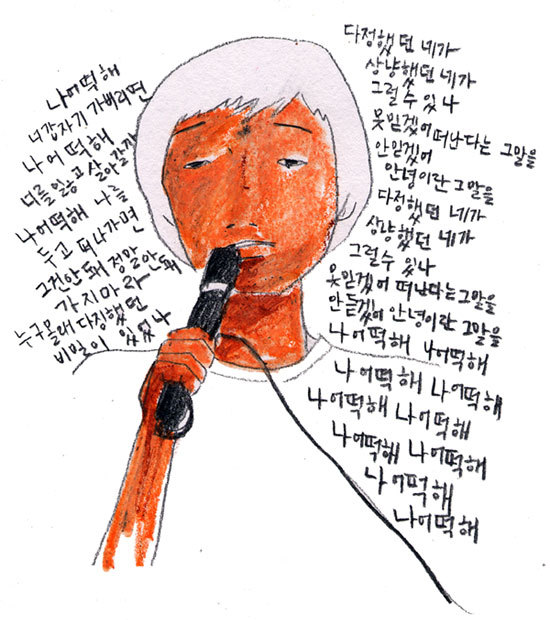 나어떡해
너갑자기 가버리면
나어떡해
너를 잃고 살아갈까
나어떡해 나를
두고 떠나가면
그건안돼 정말안돼
가지마라
누구몰래 다짐했던
비밀이 있었나
다정했던 네가
상냥했던 네가
그럴수 있나
못믿겠어 떠난다는 그말을
안믿겠어
안녕이란 그말을
다정했던 네가
상냥했던 네가
그럴수 있나
못믿겠어 떠난다는그말을
안듣겠어 안녕이란 그말을
나어떡해 나어떡해
나어떡해 나어떡해
나어떡해 나어떡해
나어떡해 나어떡해
나어떡해
나어떡해